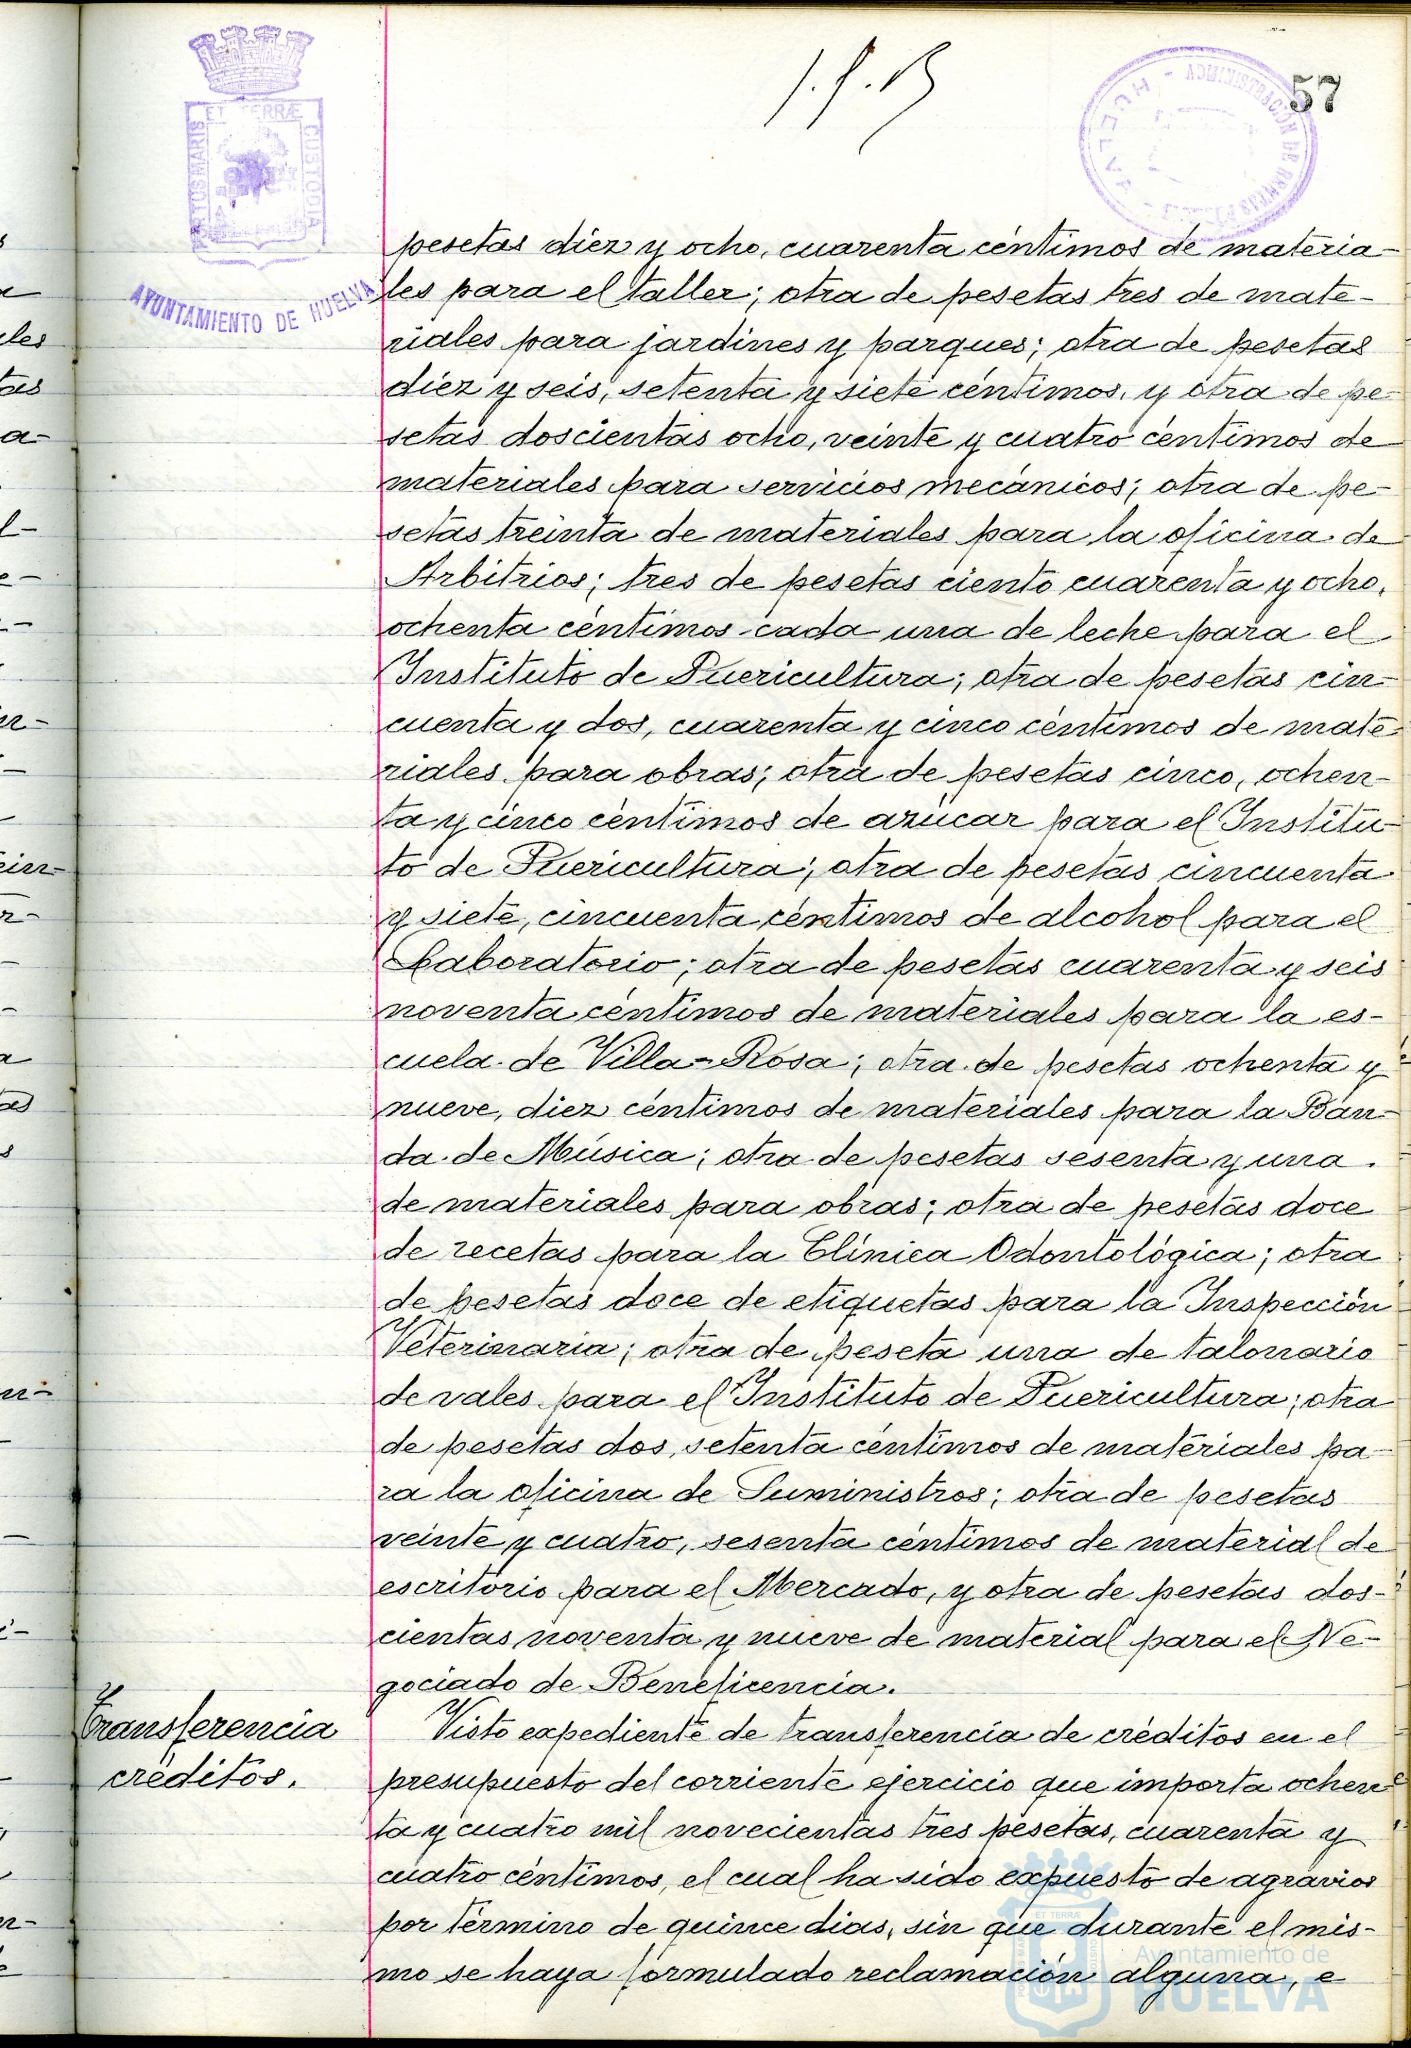 57
ET TERRÆ
CUSTODIA
AYUNTAMIENTO DE HUELVA
HUELVA
pesetas diez y ocho, cuarenta céntimos de materia-
les para el taller; otra de pesetas tres de mate-
riales para jardines y parques; otra de pesetas
diez y seis, setenta y siete céntimos, y otra de pe-
setas doscientas ocho, veinte y cuatro céntimos de
materiales para servicios mecánicos; otra de pe-
setas treinta de materiales para la oficina de
Arbitrios; tres de pesetas ciento cuarenta y ocho,
ochenta céntimos cada una de leche para el
Instituto de Puericultura; otra de pesetas cin-
cuenta y dos, cuarenta y cinco céntimos de mate-
riales para obras; otra de pesetas cinco, ochen-
ta y cinco céntimos de azúcar para el Institu-
to de Puericultura; otra de pesetas cincuenta
y siete, cincuenta céntimos de alcohol para el
Laboratorio; otra de pesetas cuarenta y seis
noventa céntimos de materiales para la es-
cuela de Villa-Rosa; otra de pesetas ochenta y
nueve, diez céntimos de materiales para la Ban-
da de Música; otra de pesetas sesenta y una
de materiales para obras; otra de pesetas doce
de recetas para la Clínica Odontológica; otra
de pesetas doce de etiquetas para la Inspección
Veterinaria; otra de peseta una de talonario
de vales para el Instituto de Puericultura; otra
de pesetas dos, setenta céntimos de materiales pa-
ra la oficina de Suministros; otra de pesetas
veinte y cuatro, sesenta céntimos de material de
escritorio para el Mercado, y otra de pesetas dos-
cientas noventa y nueve de material para el Ne-
gociado de Beneficencia.
Transferencia
créditos.
Visto expediente de transferencia de créditos en el
presupuesto del corriente ejercicio que importa ochen-
ta y cuatro mil novecientas tres pesetas, cuarenta y
cuatro céntimos, el cual ha sido expuesto de agravios
por término de quince dias, sin que durante el mis-
mo se haya formulado reclamación alguna, e
Ayuntamiento de
HUELVA